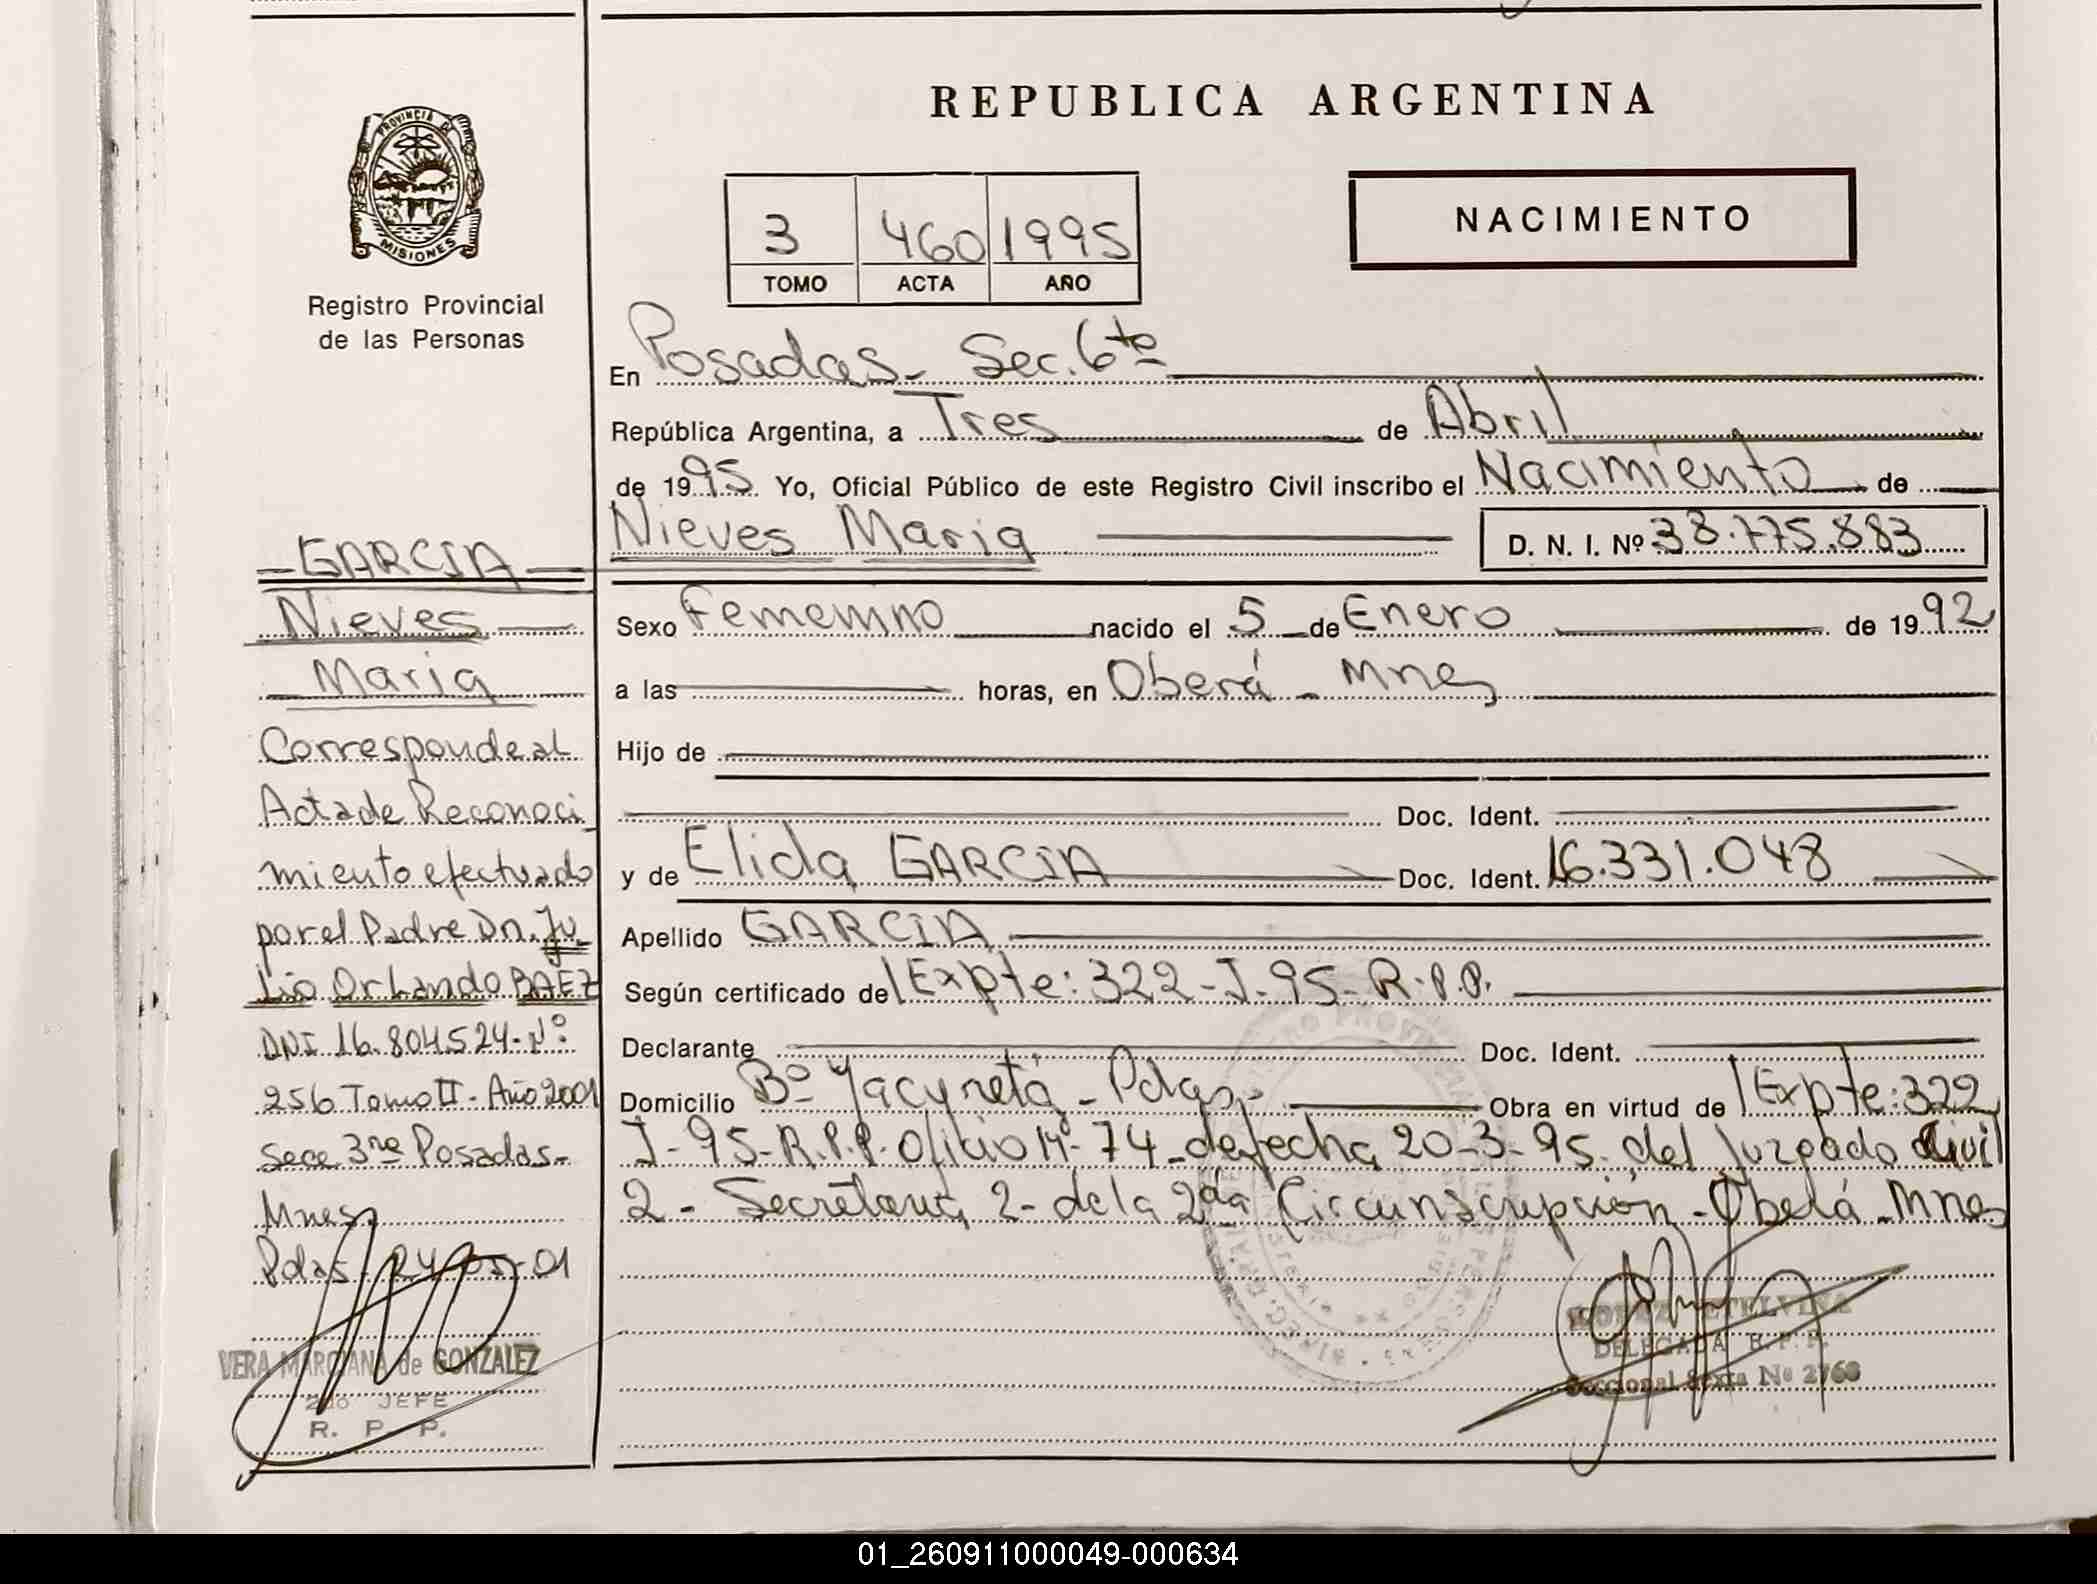 REPUBLICA ARGENTINA
PROVINCIA D
MISIONES
Registro Provincial
de las Personas
3 460 1995
TOMO ACTA AÑO
NACIMIENTO
En Posadas - Sec. 6ta
República Argentina, a Tres de Abril
de 1995 Yo, Oficial Público de este Registro Civil inscribo el Nacimiento de
Nieves Maria D. N. I. Nº 38.775.883
Sexo Femenino nacido el 5 de Enero de 1992
a las horas, en Oberá - Mnes
Hijo de
Doc. Ident.
y de Elida GARCIA Doc. Ident. 16.331.048
Apellido GARCIA
Según certificado de Expte: 322-J-95-R.P.P.
Declarante Doc. Ident.
Domicilio Bº Yacyretá - Pdas. Obra en virtud de Expte: 322
J-95-R.P.P. Oficio Nº 74 - de fecha 20-3-95. del Juzgado Civil
2 - Secretaria 2 - de la 2da Circunscripción - Oberá - Mnes
GARCIA
Nieves
Maria
Corresponde al
Acta de Reconoci
miento efectuado
por el Padre Dn. Ju
lio Orlando BAEZ
DNI 16.804.524 - Nº
256 Tomo II - Año 2001
Secc 3ra Posadas -
Mnes
Pdas. 24-05-01
VERA MARCIANA de GONZALEZ
2do JEFE
R. P. P.
ETELVINA
DELEGADA R. P. P.
Seccional Sexta Nº 2768
01_260911000049-000634